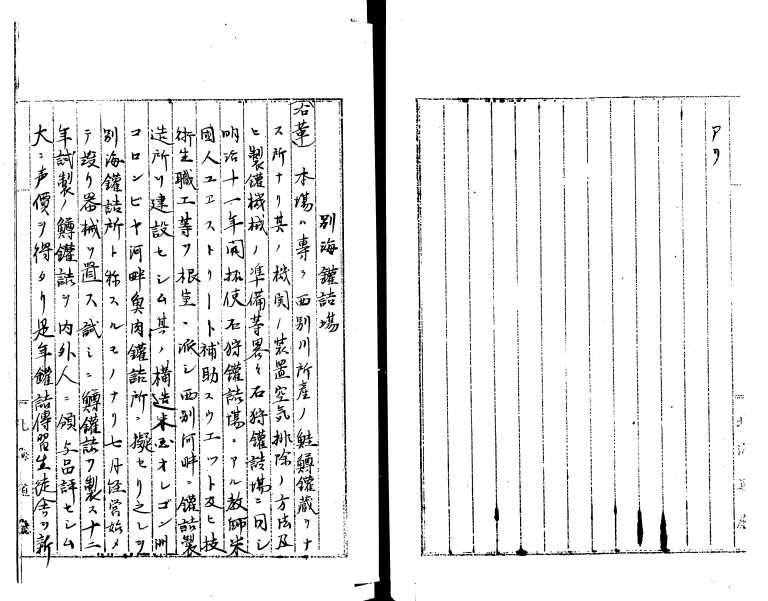 アリ
別海鑵詰場
(沿革) 本場ハ専ラ西別川所產ノ鮭鱒鑵藏ヲナ
ス所ナリ其ノ機関ノ裝置空気排除ノ方法及
ヒ製鑵機械ノ準備等畧々石狩鑵詰場ニ同シ
明治十一年開拓使石狩鑵詰場ニアル教師米
國人ユエストリート補助スウエット及ヒ技
術生職工等ヲ根室ニ派シ西別河畔ニ鑵詰製
造所ヲ建設セシム其ノ構造米国オレゴン洲
コロンビヤ河畔魚肉鑵詰所ニ擬セリ之レヲ
別海鑵詰所ト称スルモノナリ七月経営始メ
テ設り器械ヲ置ス試ミニ鱒鑵詰ヲ製ス十二
年試製ノ鱒鑵詰ヲ内外人ニ頒与品評セシム
大ニ声價ヲ得タリ是年鑵詰傳習生徒舎ヲ新
北海道廳